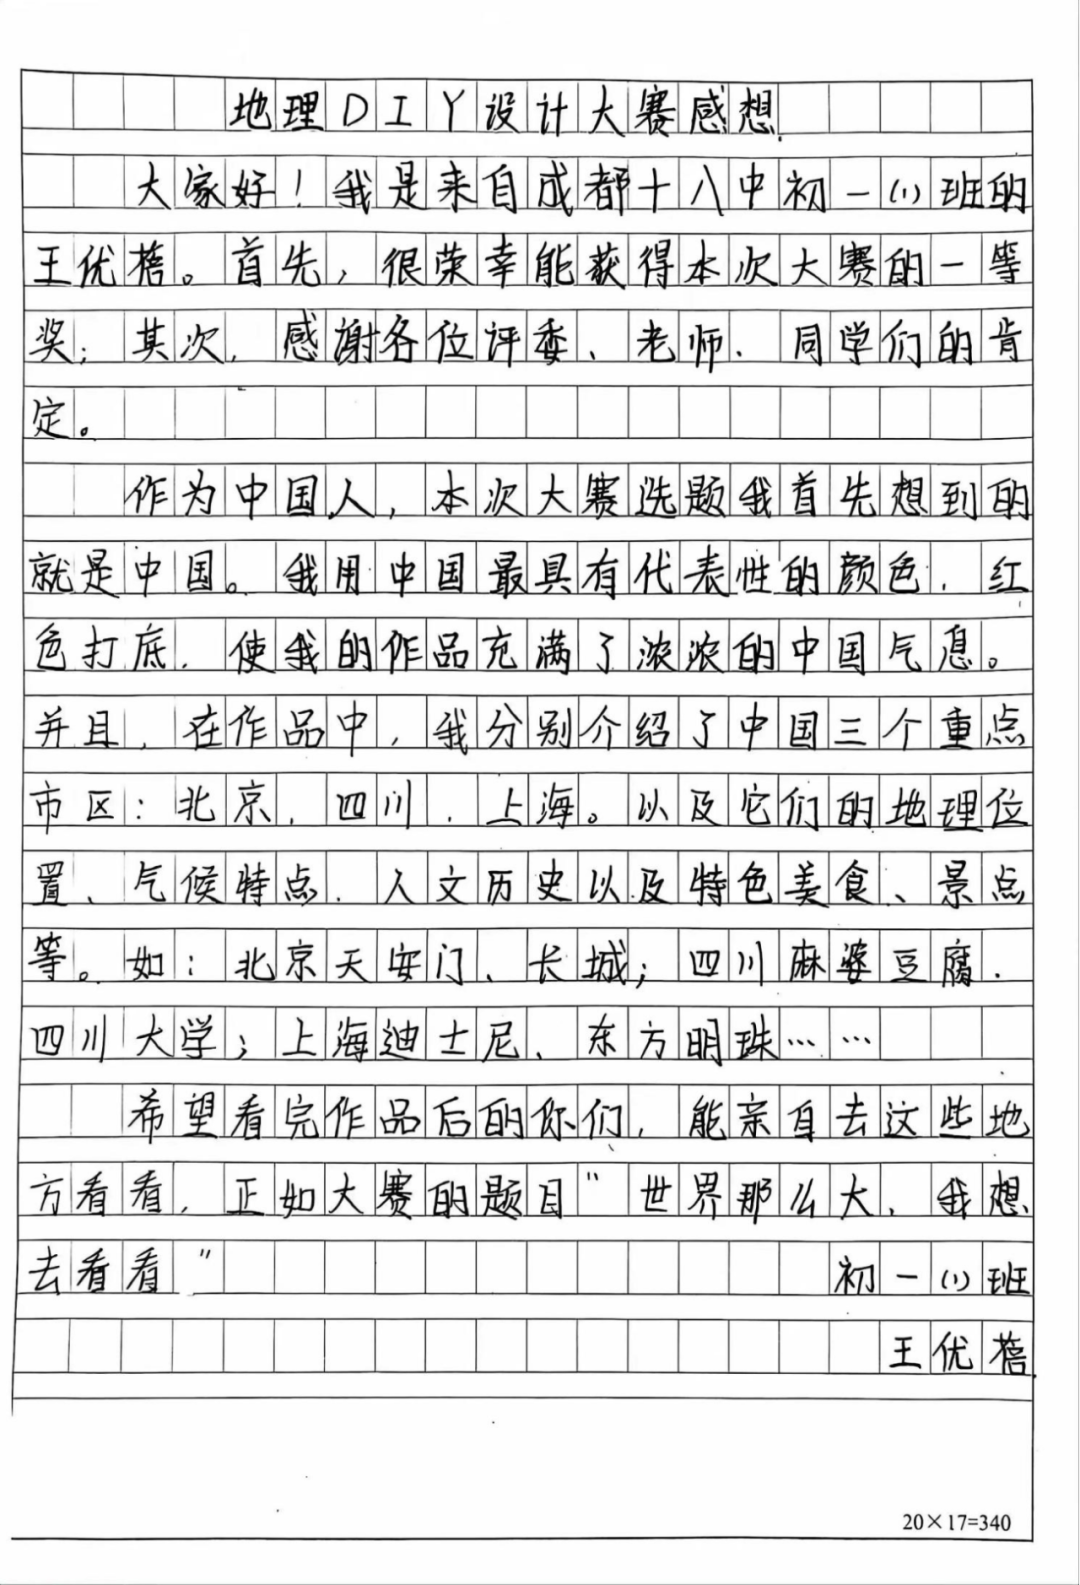 地理DIY设计大赛感想
大家好！我是来自成都十八中初一(1)班的
王优蓓。首先，很荣幸能获得本次大赛的一等
奖；其次，感谢各位评委、老师、同学们的肯
定。
作为中国人，本次大赛选题我首先想到的
就是中国。我用中国最具有代表性的颜色，红
色打底，使我的作品充满了浓浓的中国气息。
并且，在作品中，我分别介绍了中国三个重点
市区：北京、四川、上海。以及它们的地理位
置、气候特点、人文历史以及特色美食、景点
等。如：北京天安门、长城；四川麻婆豆腐、
四川大学；上海迪士尼、东方明珠……
希望看完作品后的你们，能亲自去这些地
方看看，正如大赛的题目"世界那么大，我想
去看看"
初一(1)班
王优蓓
20×17=340